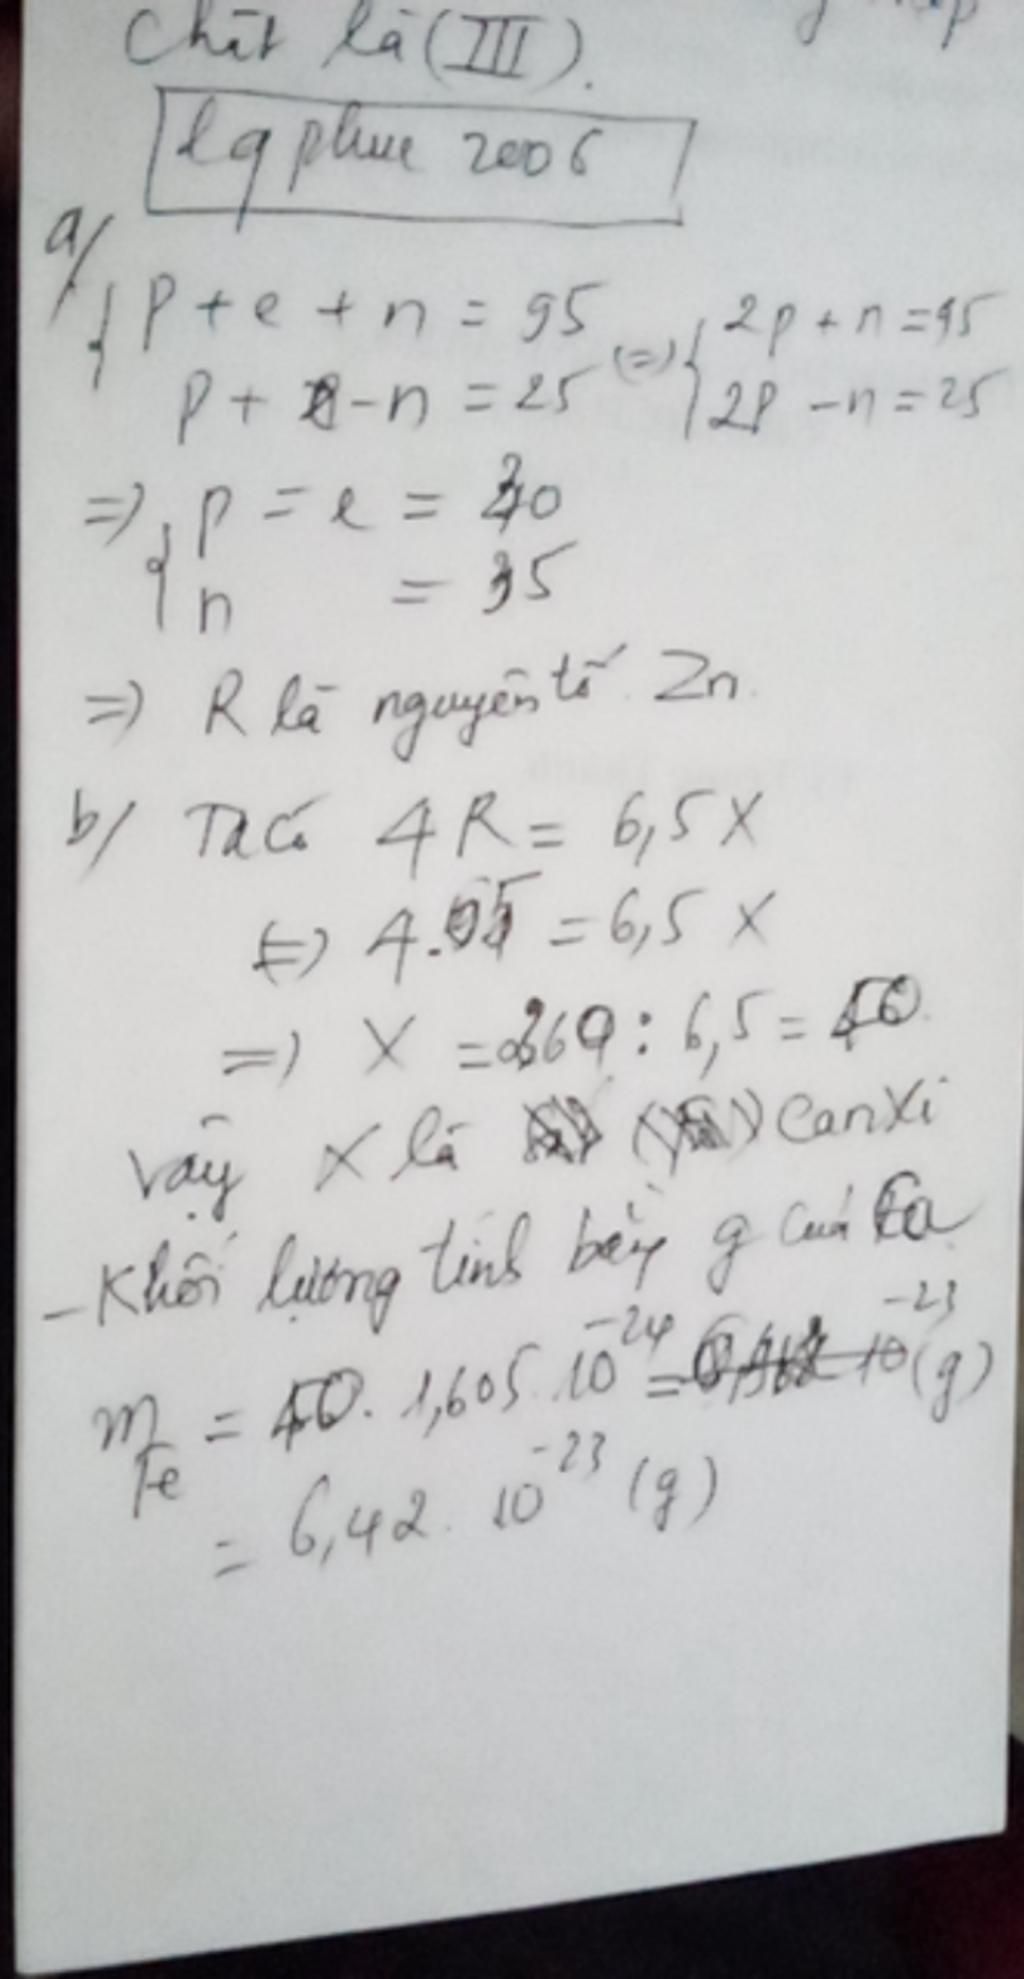 Chất là (III).
lqphuc 2006
a/
{ p + e + n = 95 (=) { 2p + n = 95
p + e - n = 25 { 2p - n = 25
=> { p = e = 30
n = 35
=> R là nguyên tố Zn.
b/ Ta có 4R = 6,5X
(=) 4.65 = 6,5 X
=> X = 260 : 6,5 = 40.
Vậy X là canxi
- Khối lượng tính bằng g của Ca
m Fe = 40. 1,605. 10^-24 = 10^-23 (g)
= 6,42. 10^-23 (g)